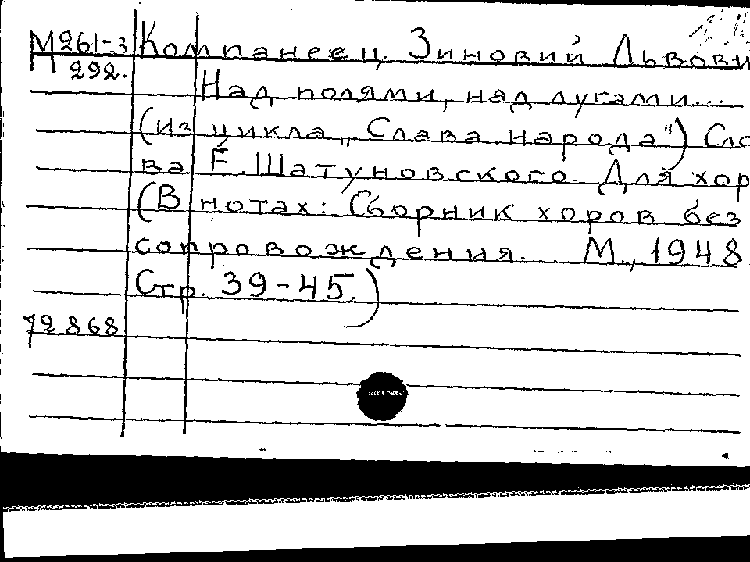 М261-3 Компанеец Зиновий Львови
292.
Над полями, над лугами...
(из цикла „Слава народа") Сло
ва Е. Шатуновского. Для хор
(В нотах: Сборник хоров без
сопровождения. М., 1948
Стр. 39-45.)
72868